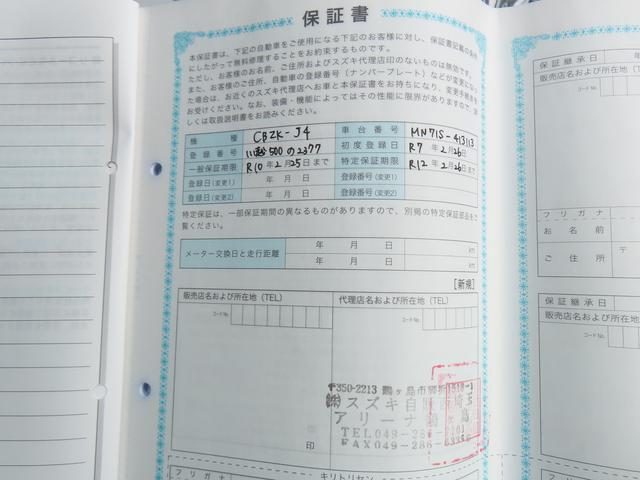 保証書
本保証書は、下記の自動車をご使用になる下記のお客様に対し、保証書記載の条件
にしたがって無料修理することをお約束するものです。
ただし、お客様のお名前、ご住所およびスズキ代理店印のないものは無効です。
また、お客様のご住所、自動車の登録番号（ナンバープレート）などが変更になっ
た場合は、お近くのスズキ代理店へお車と本保証書をお持ちになり、変更手続きを
お受けください。なお、装備・機能によってはその性能に限界がありますので、詳
しくは取扱説明書をお読みください。
機種 CBZK-J4 車台番号 MN71S-413113
登録番号 川越500の2377 初度登録日 R7年2月26日
一般保証期限 R10年2月25日まで 特定保証期限 R12年2月26日まで
登録日(変更1) 年 月 日 登録番号(変更1)
登録日(変更2) 年 月 日 登録番号(変更2)
特定保証は、一部保証期間の異なるものがありますので、別掲の特定保証部品をご
覧ください。
メーター交換日と走行距離 年 月 日 km
年 月 日 km
[新規]
販売店名および所在地（TEL） 代理店名および所在地（TEL）
コードNo. コードNo.
〒350-2213
㈱スズキ自販
アリーナ
TEL049-286
FAX049-286
印
フリガナ キリトリセン
保証継承日 年
販売店名および所在地
コードNo.
フリガナ
お名前
ご住所 〒
保証継承日
販売店名および所在地
コードNo.